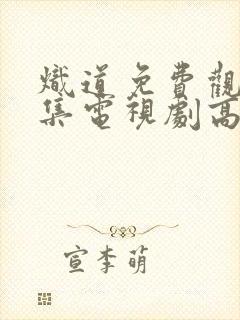 熾道免費觀
集電視劇高
宣李萌